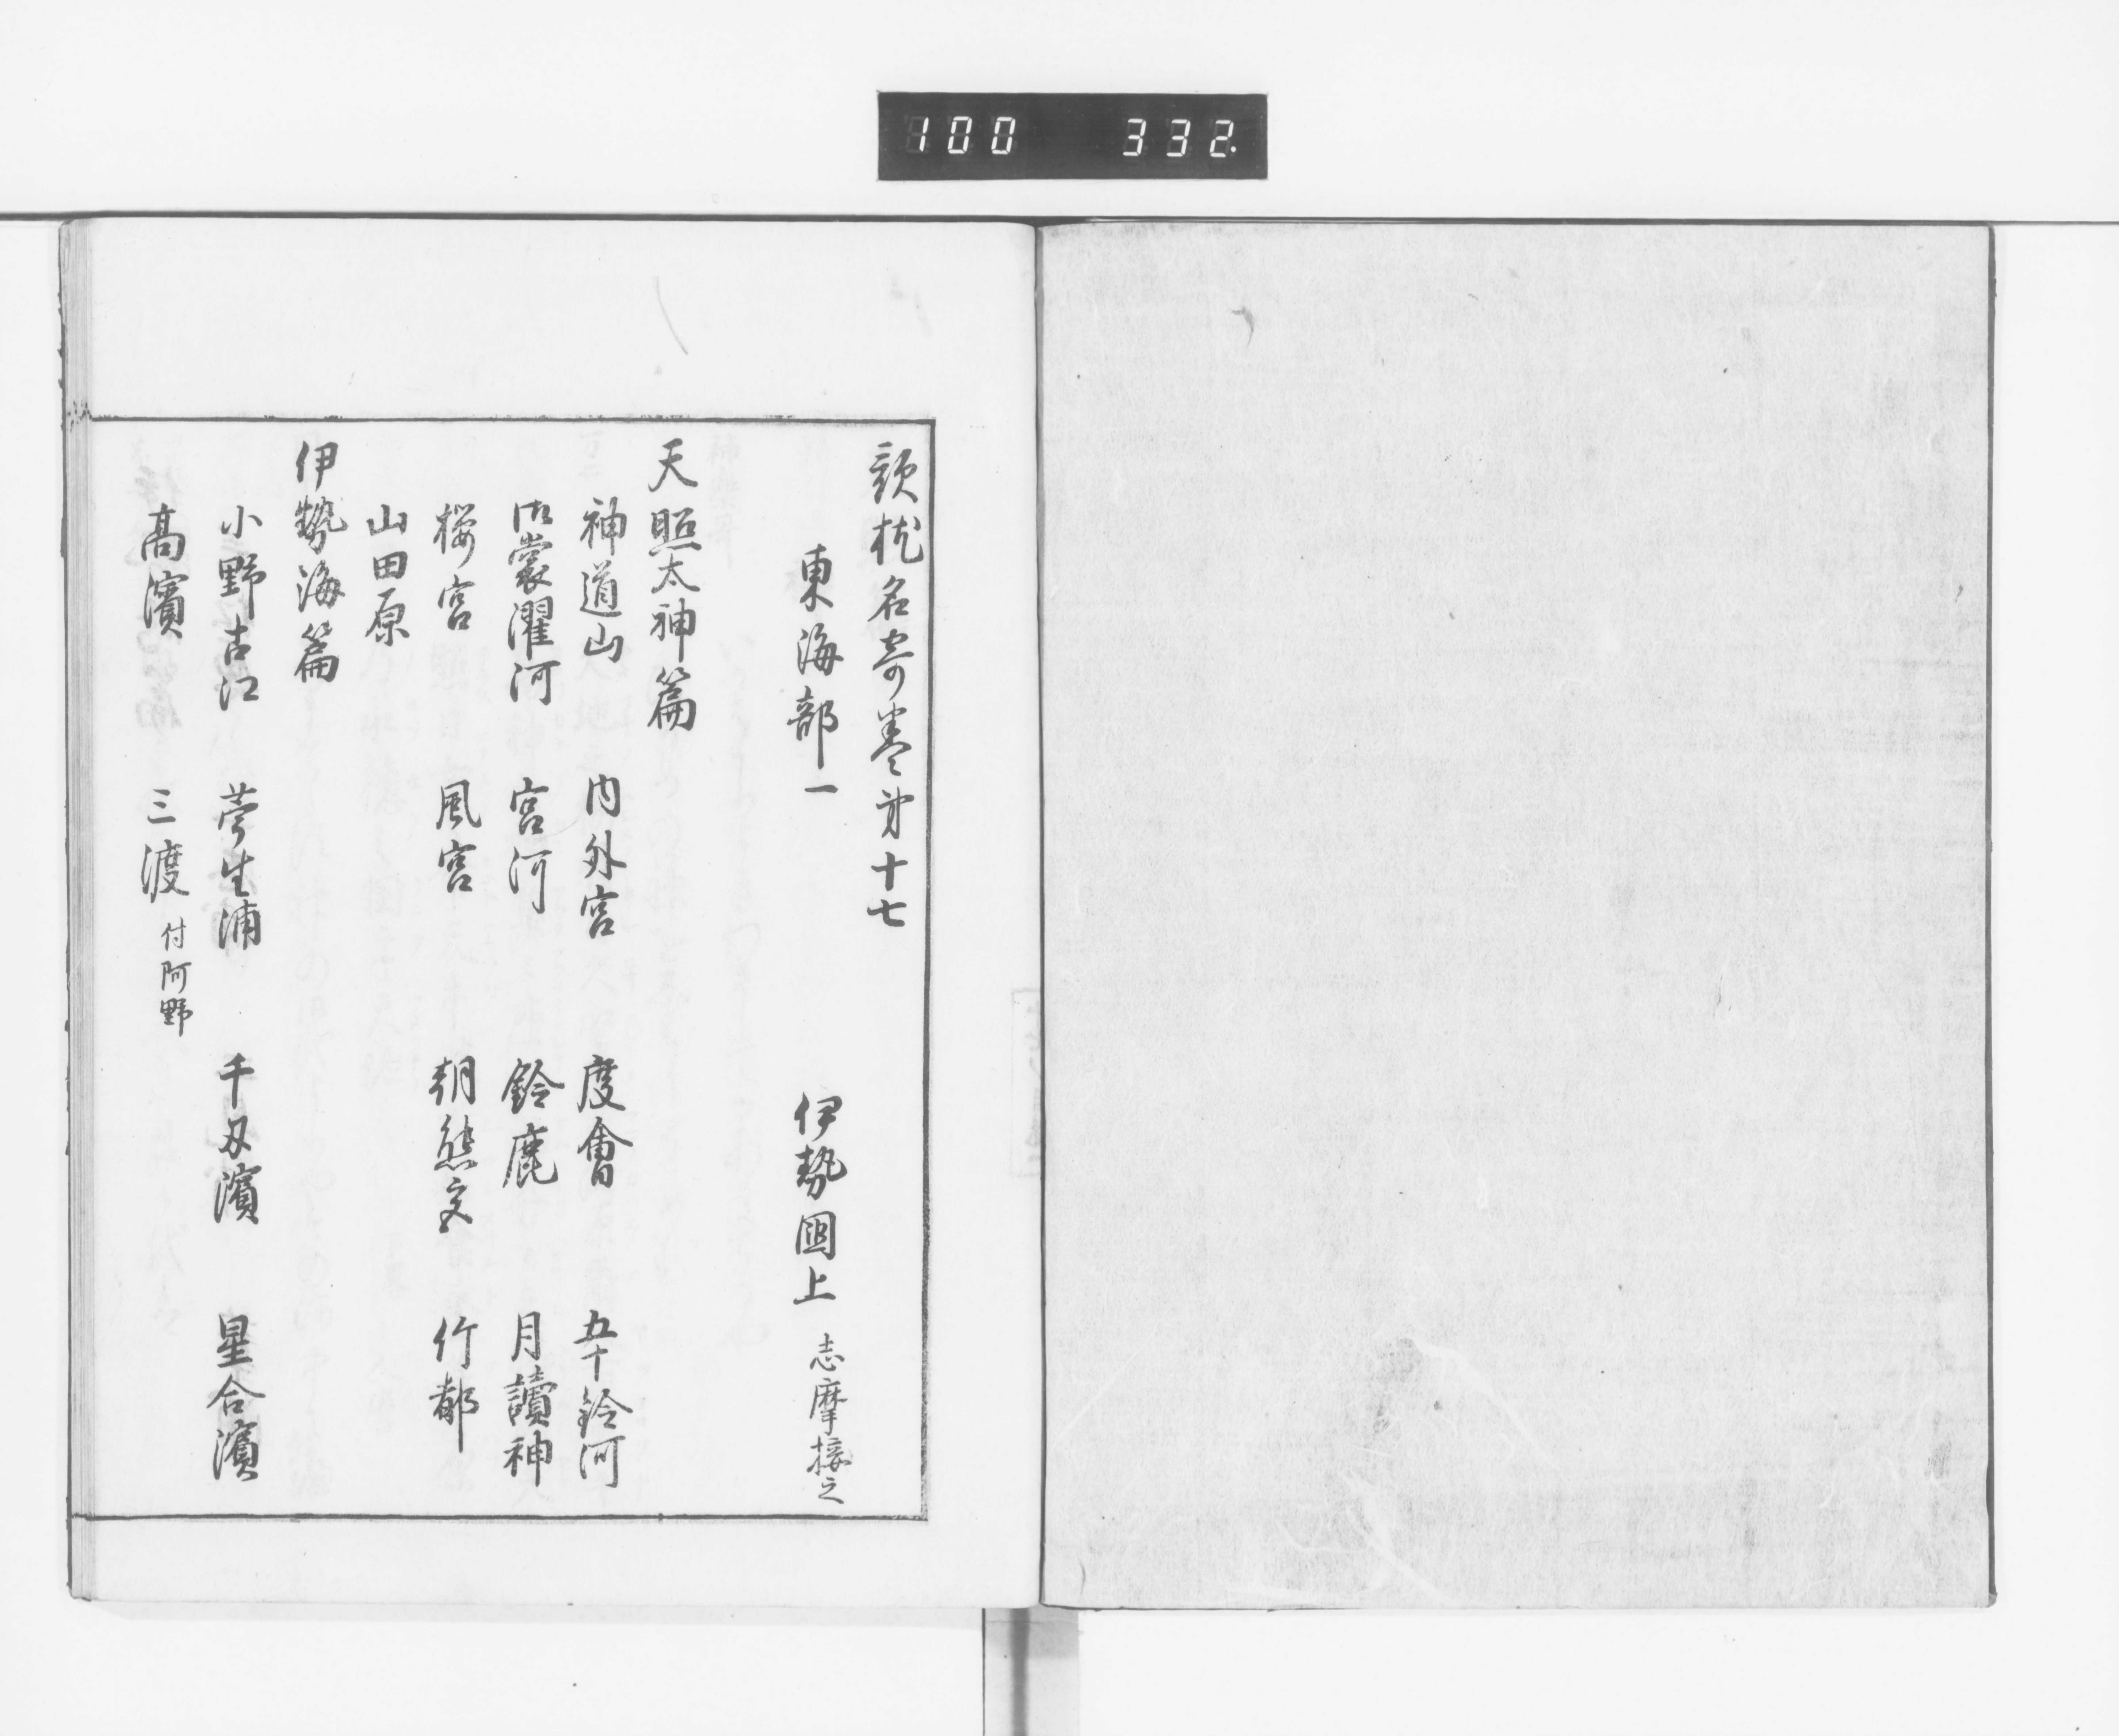 100 332.
謌枕名寄巻第十七
東海部一 伊勢國上 志摩接之
天照太神篇
神道山 内外宮 度會 五十鈴河
御裳濯河 宮河 鈴鹿 月讀神
桜宮 風宮 朝熊宮 竹都
山田原
伊勢海篇
小野古江 菅生浦 千尋濱 星合濱
髙濱 三渡 付阿野